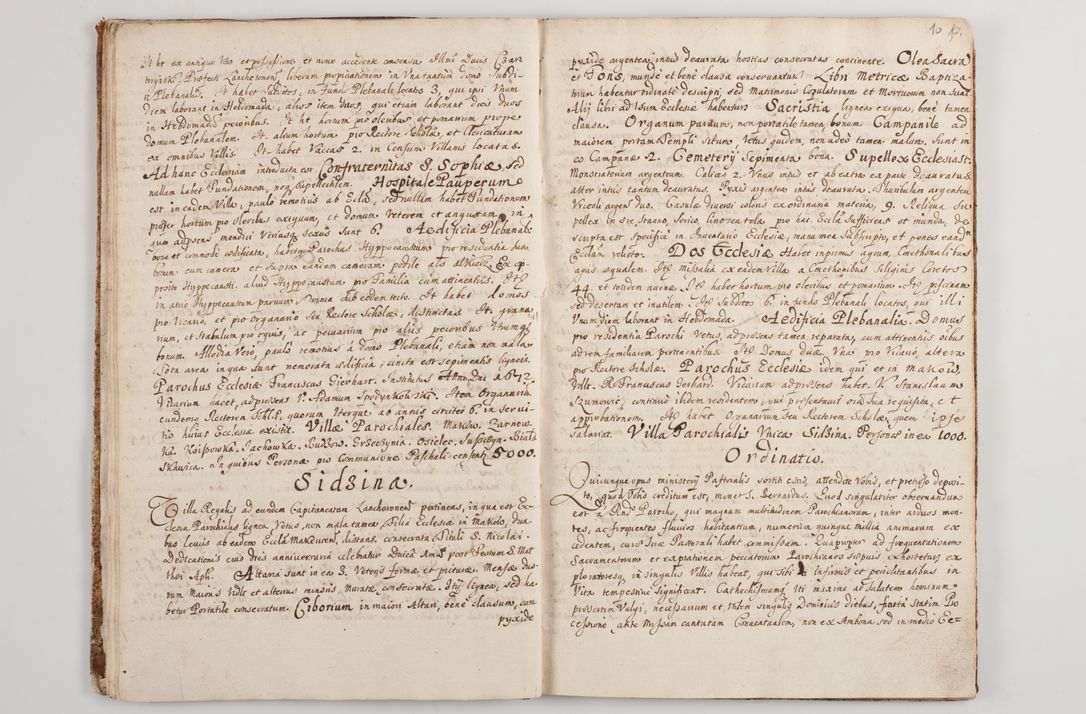 It ht ex antiquo usu et possessione et novo accedente consensu Illmi Ducis Czar
toryiski Præfecti Lanckoronen. liberam propinationem in Una tantum domo Subdi-
ti Plebanalis. It habet Subditos, in Fundo Plebanali locatos 3, qui ipsi Unum
diem laborant in Hebdomada, alios item duos, qui etiam laborant dies duos
in Hebdomada pecoribus. It ht hortum pro oleribus et pomarium prope
domum Plebanalem. It. alium hortum pro Rectore Scholæ, et Clericaturam
ex omnibus Villis. It. habet Vaccas 2. in Censum Villanis locatas.
Ad hanc Ecclesiam introducta est Confraternitas S. Sophiæ, sed
nullam habet Fundationem, neq. Supellectilem. Hospitale Pauperum
est in eadem Villa, paulo remotius ab Eccla, sed nullam habet Fundationem
præter hortum pro oleribus exiguum, et domum Veterem et angustam, in
qua adpræsens mendici Utriusq. sexus sunt 6. Aedificia Plebanalia
bona et commode ædificata, habetq. Parochus Hyppocaustum pro residentia sua
bonum cum camera et supra eandem cameram pensile alis alkierz. Ex op-
posito Hyppocausti, aliud Hyppocaustum pro Familia cum attinentiis. Itq.
in atrio Hyppocaustum parvum. Omnia sub eodem tecto. It habet domos
pro Vicario, et pro Organario seu Rectore Scholæ, distinctas. It. grana
rium, et stabulum pro equis, ac pecuarium pro aliis pecoribus Utrumq.
bonum. Allodia Vero, paulo remotius à domo Plebanali, etiam non mala.
Tota area in qua sunt memorata ædificia, cincta est sepimentis ligneis.
Parochus Ecclesiæ Franciscus Gierhart. Institutus Anno Dni 1672.
Vicarium habet, adpræsens V. Adamum Spodynkowski. Item Organarium
eundemq. Rectorem Scholæ, quorum Uterque ab annis circiter 6. in servi-
tio huius Ecclesiæ existit. Villæ Parochiales. Makow. Zarnow
ka. Koiszowka. Jachowka. Budzow. Grzechynia. Osielec. Juszczyn. Biała
Skawica. In quibus Personæ pro Communione Paschali censentur 5000.
Sidzina.
Villa Regalis ad eundem Capitaneatum Lanckoronens pertinens, in qua est Ec-
clesia Parochialis lignea Vetus, non mala tamen, Filia Ecclesiæ in Makow, dua
bus leucis ab eadem Eccla Makoviens, distans, consecrata Tituli S. Nicolai.
Dedicationis eius dies anniversaria celebratur Dnica Ima post Festum S. Mat
thæi Apli. Altaria sunt in ea 3. Veteris formæ et picturæ. Mensæ duo-
rum Maioris Vidlt et alterius minoris, muratæ consecratæ. Itq. lignea, sed ha-
betur Portatile consecratum. Ciborium in maiori Altari, bene clausum, cum
pyxide
10 12.
pyxide argentea intus deaurata hostias consecratas continente. Olea Sacra
et Fons, munde et bene clausa conservantur. Libri Metricæ Baptiza
torum habentur ordinate descripti, sed Matrimonio Copulatorum et Mortuorum non sunt
Alij libri ad Usum Ecclesiæ habentur. Sacristia lignea exigua, bene tamen
clausa. Organum parvum, non portatile tamen, bonum. Campanile ad
maiorem portam Templi situm, Vetus quidem, non adeo tamen malum. Sunt in
eo Campanæ 2. Cemeterij sepimenta bona. Supellex Ecclesiast.
Monstratorium argenteum. Calices 2. Unus intus et ab extra ex parte deauratus
alter intus tantum deauratus. Pyxis argentea intus deaurata. Thuribulum argenteum
Vrceoli argen. duo. Casulæ diversi coloris ex ordinaria materia, 9. Reliqua Su
pellex in ære, stanno, serico, lineo sea tela pro hac Eccla sufficiens et munda, de
scripta est specificè in Inventario Ecclesiæ, manu mea subscripto, et penes eand
Ecclam relicto. Dos Ecclesiæ Habet inprimis agrum, Cmethonalibus
agris æqualem. Itq. missalia ex eadem Villa a Cmethonibus siliginis Coretos
44. et totidem avenæ. Itq. habet hortum pro oleribus et pomarium. Itq. piscinam
sed desertam et inutilem. Itq. Subditos 6. in fundo Plebanali locatos, qui illi
Unum diem laborant in Hebdomada. Aedificia Plebanalia. Domus
pro residentia Parochi Vetus, adpræsens tamen reparata, cum attinentiis oibus
ad rem familiarem pertinentibus. Itq. Domus duæ, Una pro Vicario, altera
pro Rectore Scholæ. Parochus Ecclesiæ idem qui et in Makow,
Vidlt. R. Franciscus Gerhard. Vicarium adpræsens habet. V. Stanislaum
Szumowic, continuo ibidem residentem, qui præsentavit oia sua requisita, et
approbationem. Itq. habet Organarium seu Rectorem Scholæ, quem ipse
salariat. Villa Parochialis Unica Sidzina. Personæ in ea 1000.
Ordinatio.
Quicunque opus ministerij Pastoralis sortiti estis, attendite Vobis, et pretioso deposi-
to, quod Vobis creditum est, monet S. Bernardus. Quod singulariter observandum
est à Rndo Parocho, qui magnam multitudinem Parochianorum, inter arduos mon-
tes, ac frequentes fluvios habitantium, numerum quinque millia animarum ex
cedentem, curæ suæ Pastorali habet commissam. Quapropter ad frequentationem
Sacramentorum et expiationem peccatorum Parochianos sæpius exhortetur, ex
ploratoresq. in singulis Villis habeat, qui sibi infirmis et periclitantibus in
Vita tempestive significent. Cathechismumq. Uti maxime ad salutem hominum
præsertim Vulgi, necessarium et Utilem singulis Dominicis diebus, facta statim Pro
cessione ante Missam cantatam Conventualem, non ex Ambona sed in medio Ec=